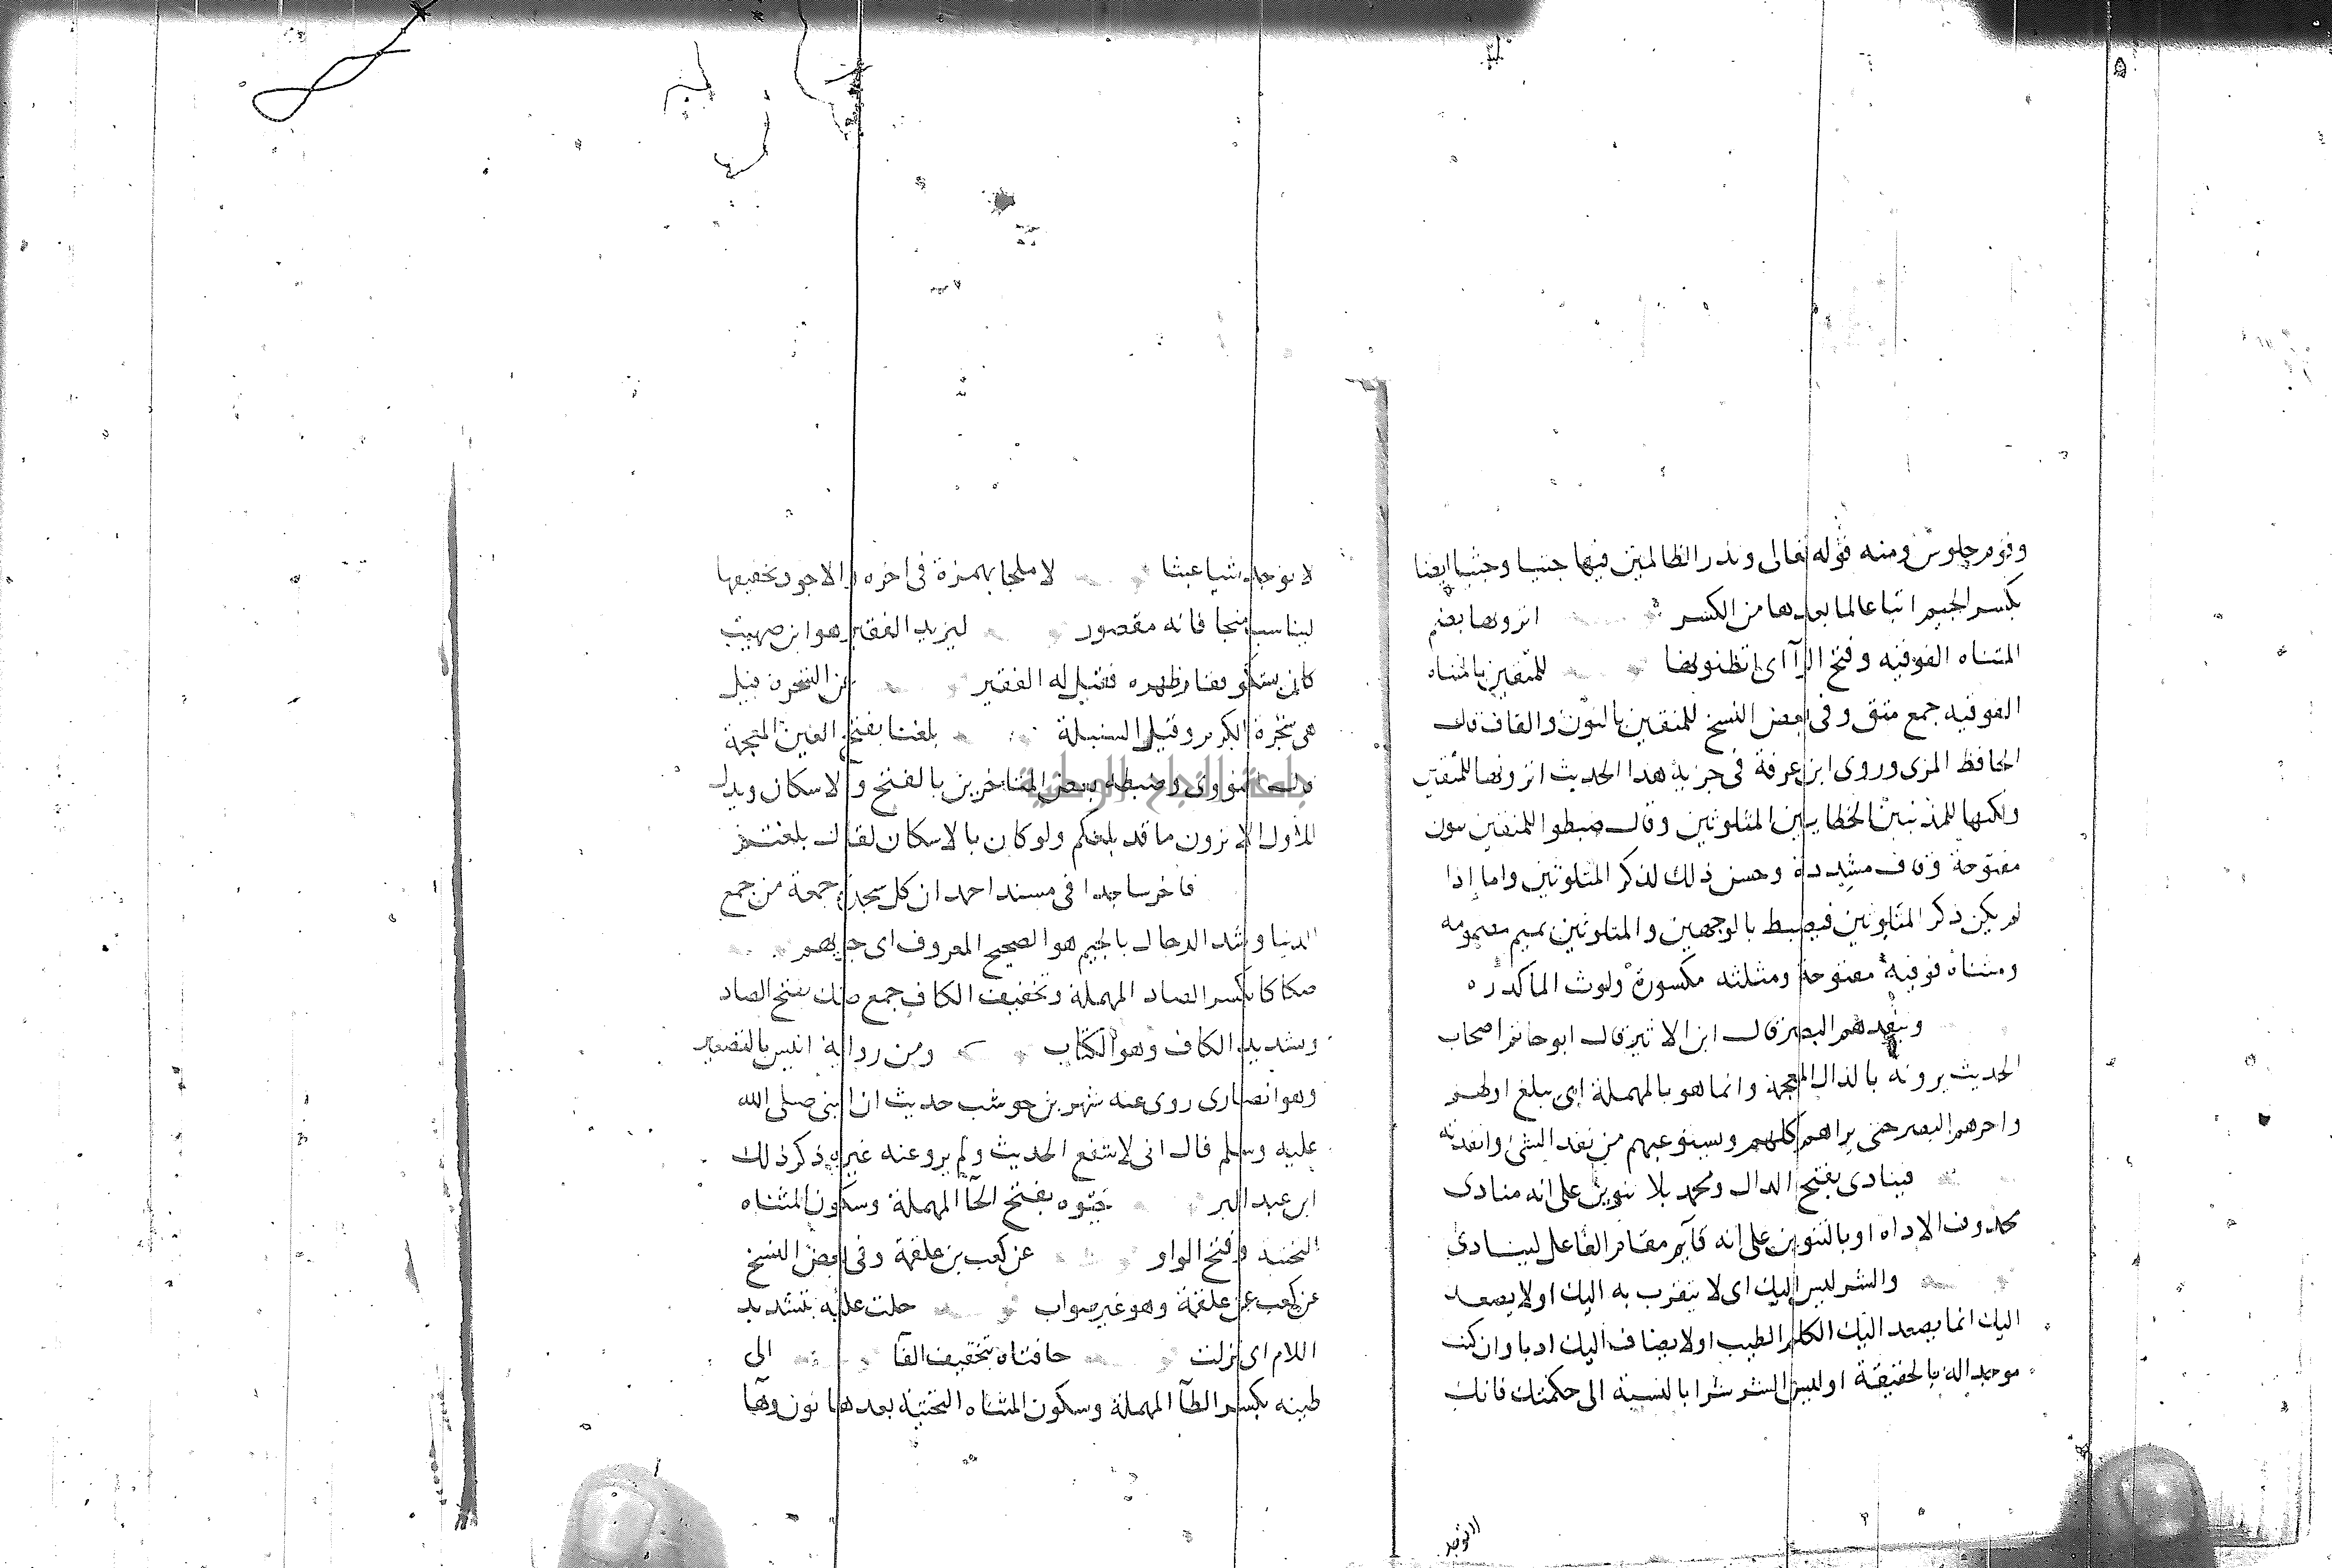 وقوم جلوس ومنه قوله تعالى ونذر الظالمين فيها جثيا وجثيا ايضا
بكسر الجيم اتباعا لما بعدها من الكسر اترونها بضم
المثناه الفوقيه وفتح الرآ اى اتظنونها للمتقين بالمثناه
الفوقيه جمع متق وفى بعض النسخ للمنقين بالنون والقاف قال
الحافظ المزى وروى ابن عرفة فى جزيه هذا الحديث اترونها للمنقين
ولكنها للمذنبين الخطايين المتلوثين وقال ضبطوا للمنقين بنون
مفتوحة وقاف مشددة وحسن ذلك لذكر المتلوثين واما إذا
لم يكن ذكر المتلوثين فيضبط بالوجهين والمتلوثين بميم مضمومه
ومثناه فوقيه مفتوحة ومثلثه مكسورة ولوث الما كدره
وينفدهم البصر قال ابن الاثير قال ابو حاتم اصحاب
الحديث يرونه بالذال المعجمة وانما هو بالمهملة اى يبلغ اولهم
واخرهم البصر حتى يراهم كلهم ويستوعبهم من نفد الشئ وانفدته
فينادى بفتح الدال ومحمد بلا تنوين على انه منادى
محذوف الاداه او بالتنوين على انه قآيم مقام الفاعل لينادى
والشر ليس اليك اى لا يتقرب به اليك او لا يصعد
اليك انما يصعد اليك الكلم الطيب او لا يضاف اليك ادبا وان كنت
موجد اله بالحقيقة او ليس الشر شرا بالنسبة الى حكمتك فانك
لا توجد شيا عبثا لا ملجا بهمزة فى اخره والاجود تخفيفها
ليناسب منجا فانه مقصور ليزيد الفقير هو ابن صهيب
كان يشكو فقار ظهره فقيل له الفقير عن الشجره قيل
هى شجرة الكرم وقيل السنبلة بلغنا بفتح الغين المعجمة
قال النووى وضبطه بعض المتاخرين بالفتح والاسكان ويدل
للاول الا ترون ما قد بلغكم ولو كان بالاسكان لقال بلغتم
فاخر ساجدا فى مسند احمد ان كل سجدة جمعة من جمع
الدنيا وشد الرحال بالجيم هو الصحيح المعروف اى جريهم
صكاكا بكسر الصاد المهملة وتخفيف الكاف جمع صك بفتح الصاد
وتشديد الكاف وهو الكتاب ومن رواية انيس بالتصغير
وهو انصارى روى عنه شهر بن حوشب حديث ان النبى صلى الله
عليه وسلم قال انى لاشفع الحديث ولم يرو عنه غيره ذكر ذلك
ابن عبد البر حيوه بفتح الحآ المهملة وسكون المثناه
التحتيه وفتح الواو عن كعب بن علقمة وفى بعض النسخ
عن كعب عن علقمة وهو غير صواب حلت عليه بتشديد
اللام اى نزلت حافتاه بتخفيف الفآ الى
طينه بكسر الطآ المهملة وسكون المثناه التحتيه بعدها نون وهآ
جامعة النجاح الوطنية